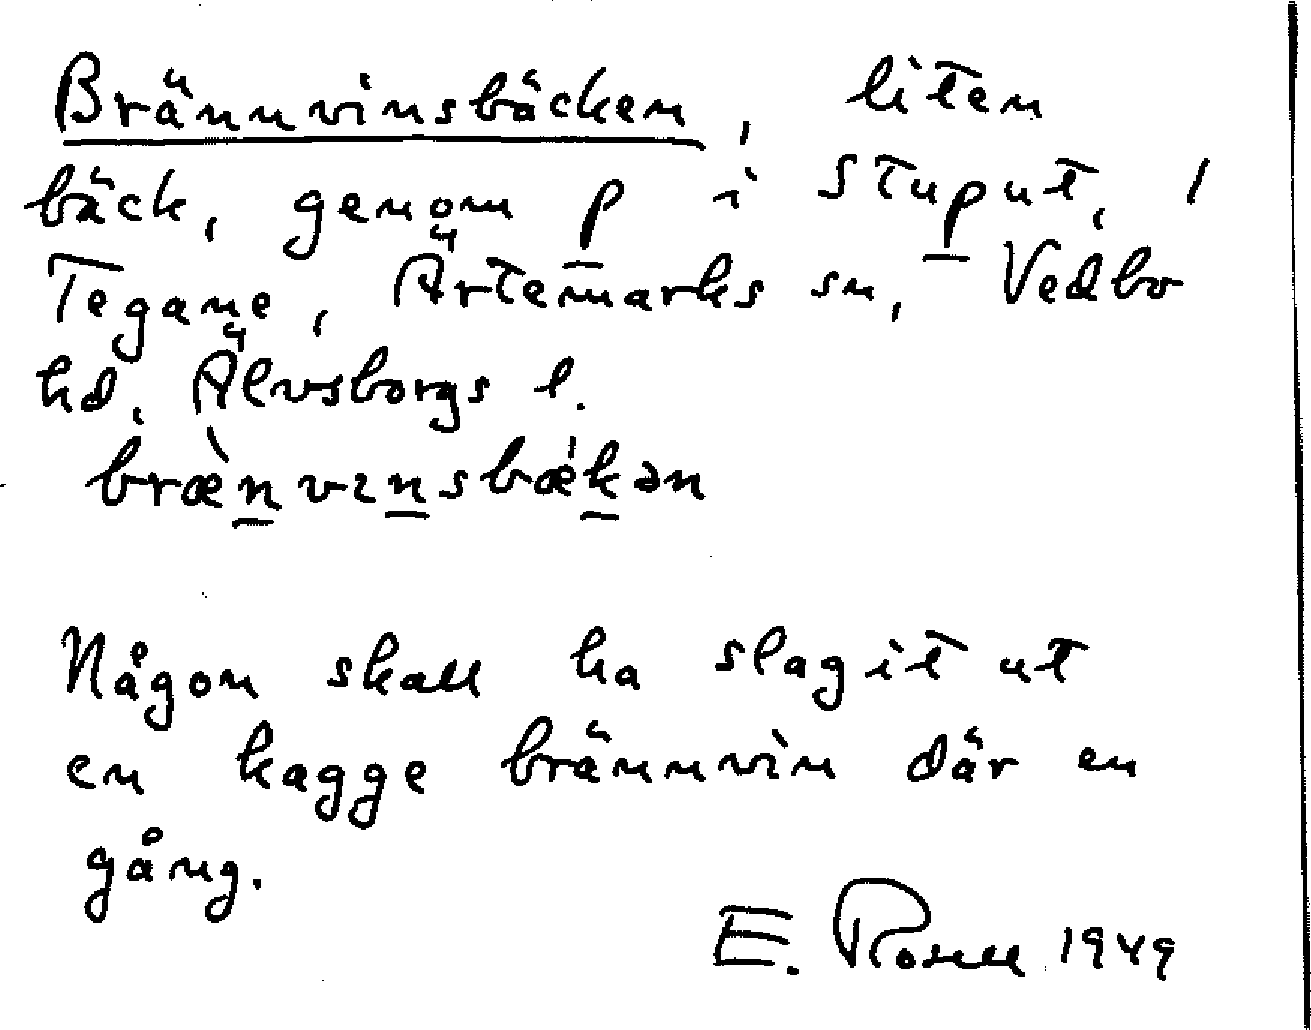 Brännvinsbäcken, liten
bäck, genom p i stuput, /
Tegane, Ärtemarks sn, Vedbo
hd, Älvsborgs l.
bræ̀n̲vɪn̲sbæ̍k̲ən
Någon skall ha slagit ut
en kagge brännvin där en
gång.
E. Rosell 1949